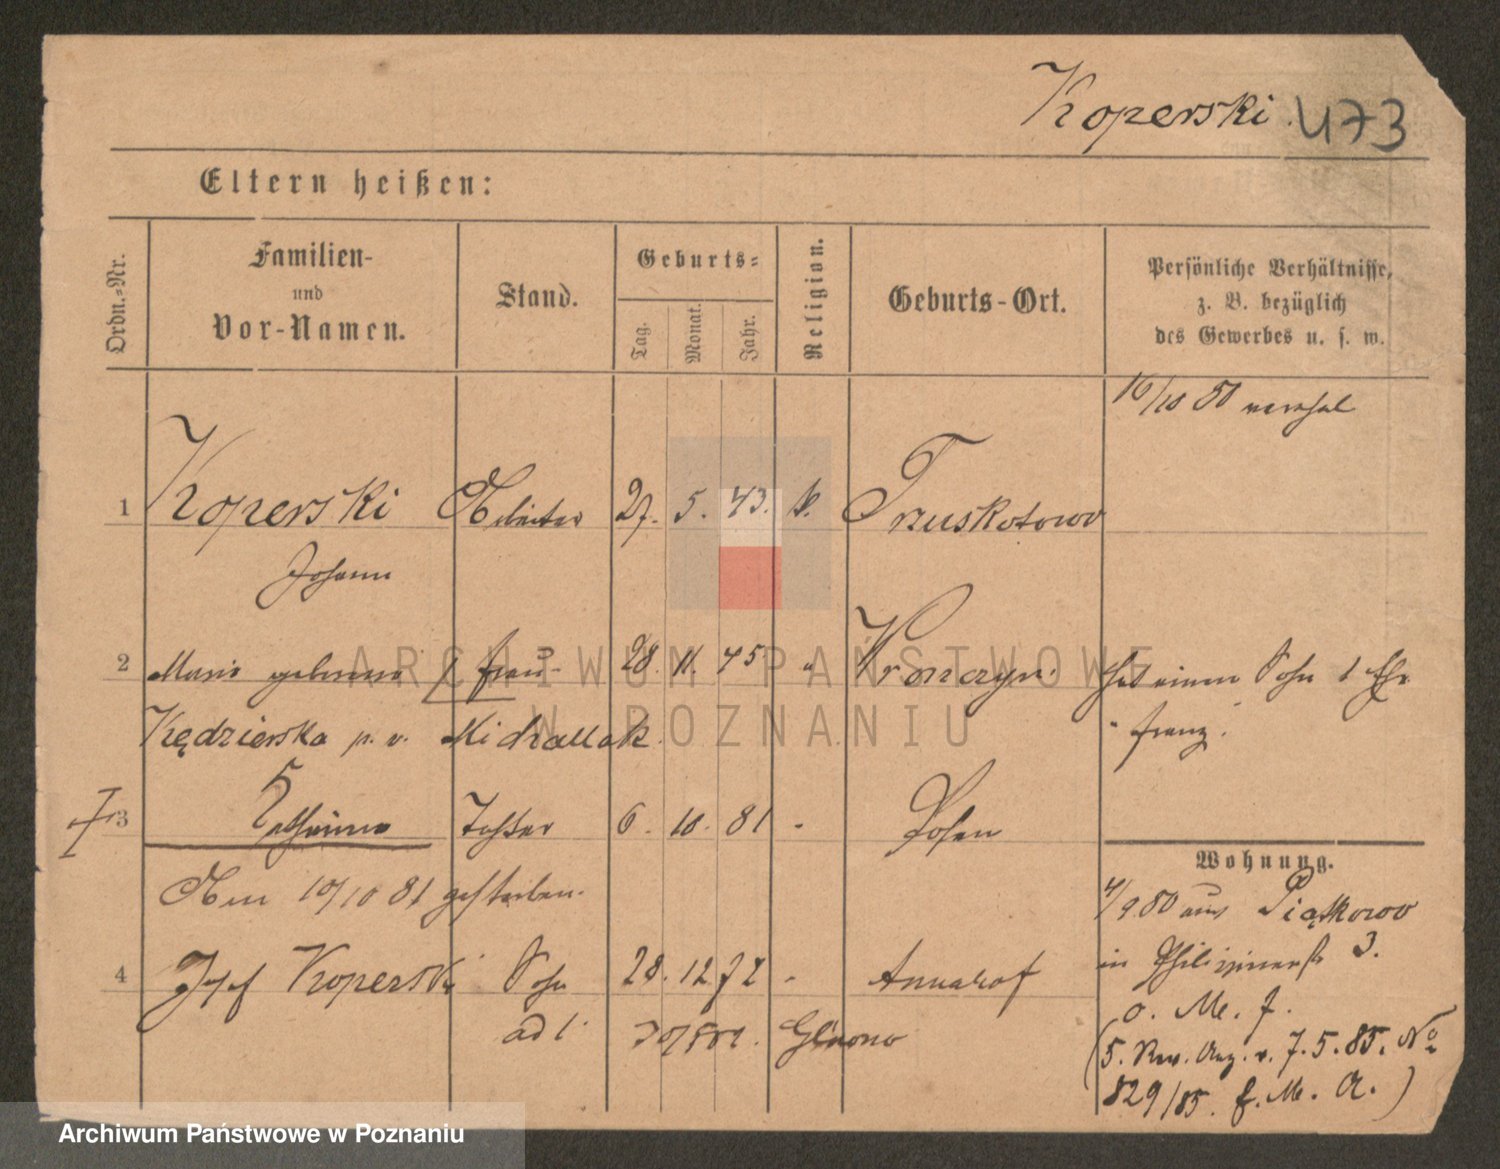 Koperski 473
Eltern heißen:
Ordn.-Nr.
Familien-
und
Vor-Namen.
Stand.
Geburts-
Tag.
Monat.
Jahr.
Religion.
Geburts-Ort.
Persönliche Verhältnisse,
z. B. bezüglich
des Gewerbes u. s. w.
16/10 80
1 Koperski Arbeiter 27. 5. 43. k. Truskotowo
Johann
2 Maria geborene Frau 28. 11. 45 " hat einen Sohn 1 Ehe
Kędzierska p. v. Michallak
"Franz".
3 Katharina Tochter 6. 10. 81 - Posen
Am 10/10 81 gestorben.
4 Josef Koperski Sohn 28. 12 72 - Annahof
ad 1 Glinno
Wohnung.
4/9 80 aus Piątkowo
in 3.
o. M. f.
(5. Rev. Anz. v. 7. 5. 85. No
829/85. f. M. A.)
ARCHIWUM PAŃSTWOWE
W POZNANIU
Archiwum Państwowe w Poznaniu